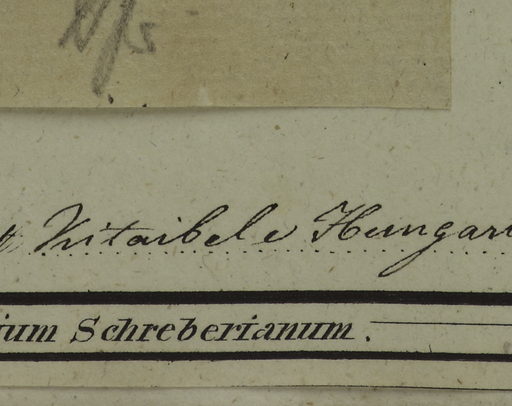 Kitaibele Hungar
ium Schreberianum.